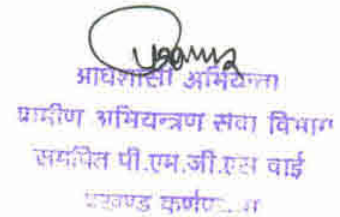 अधिशासी अभियन्ता
ग्रामीण अभियन्त्रण सेवा विभाग
समर्पित पी.एम.जी.एस वाई
प्रखण्ड